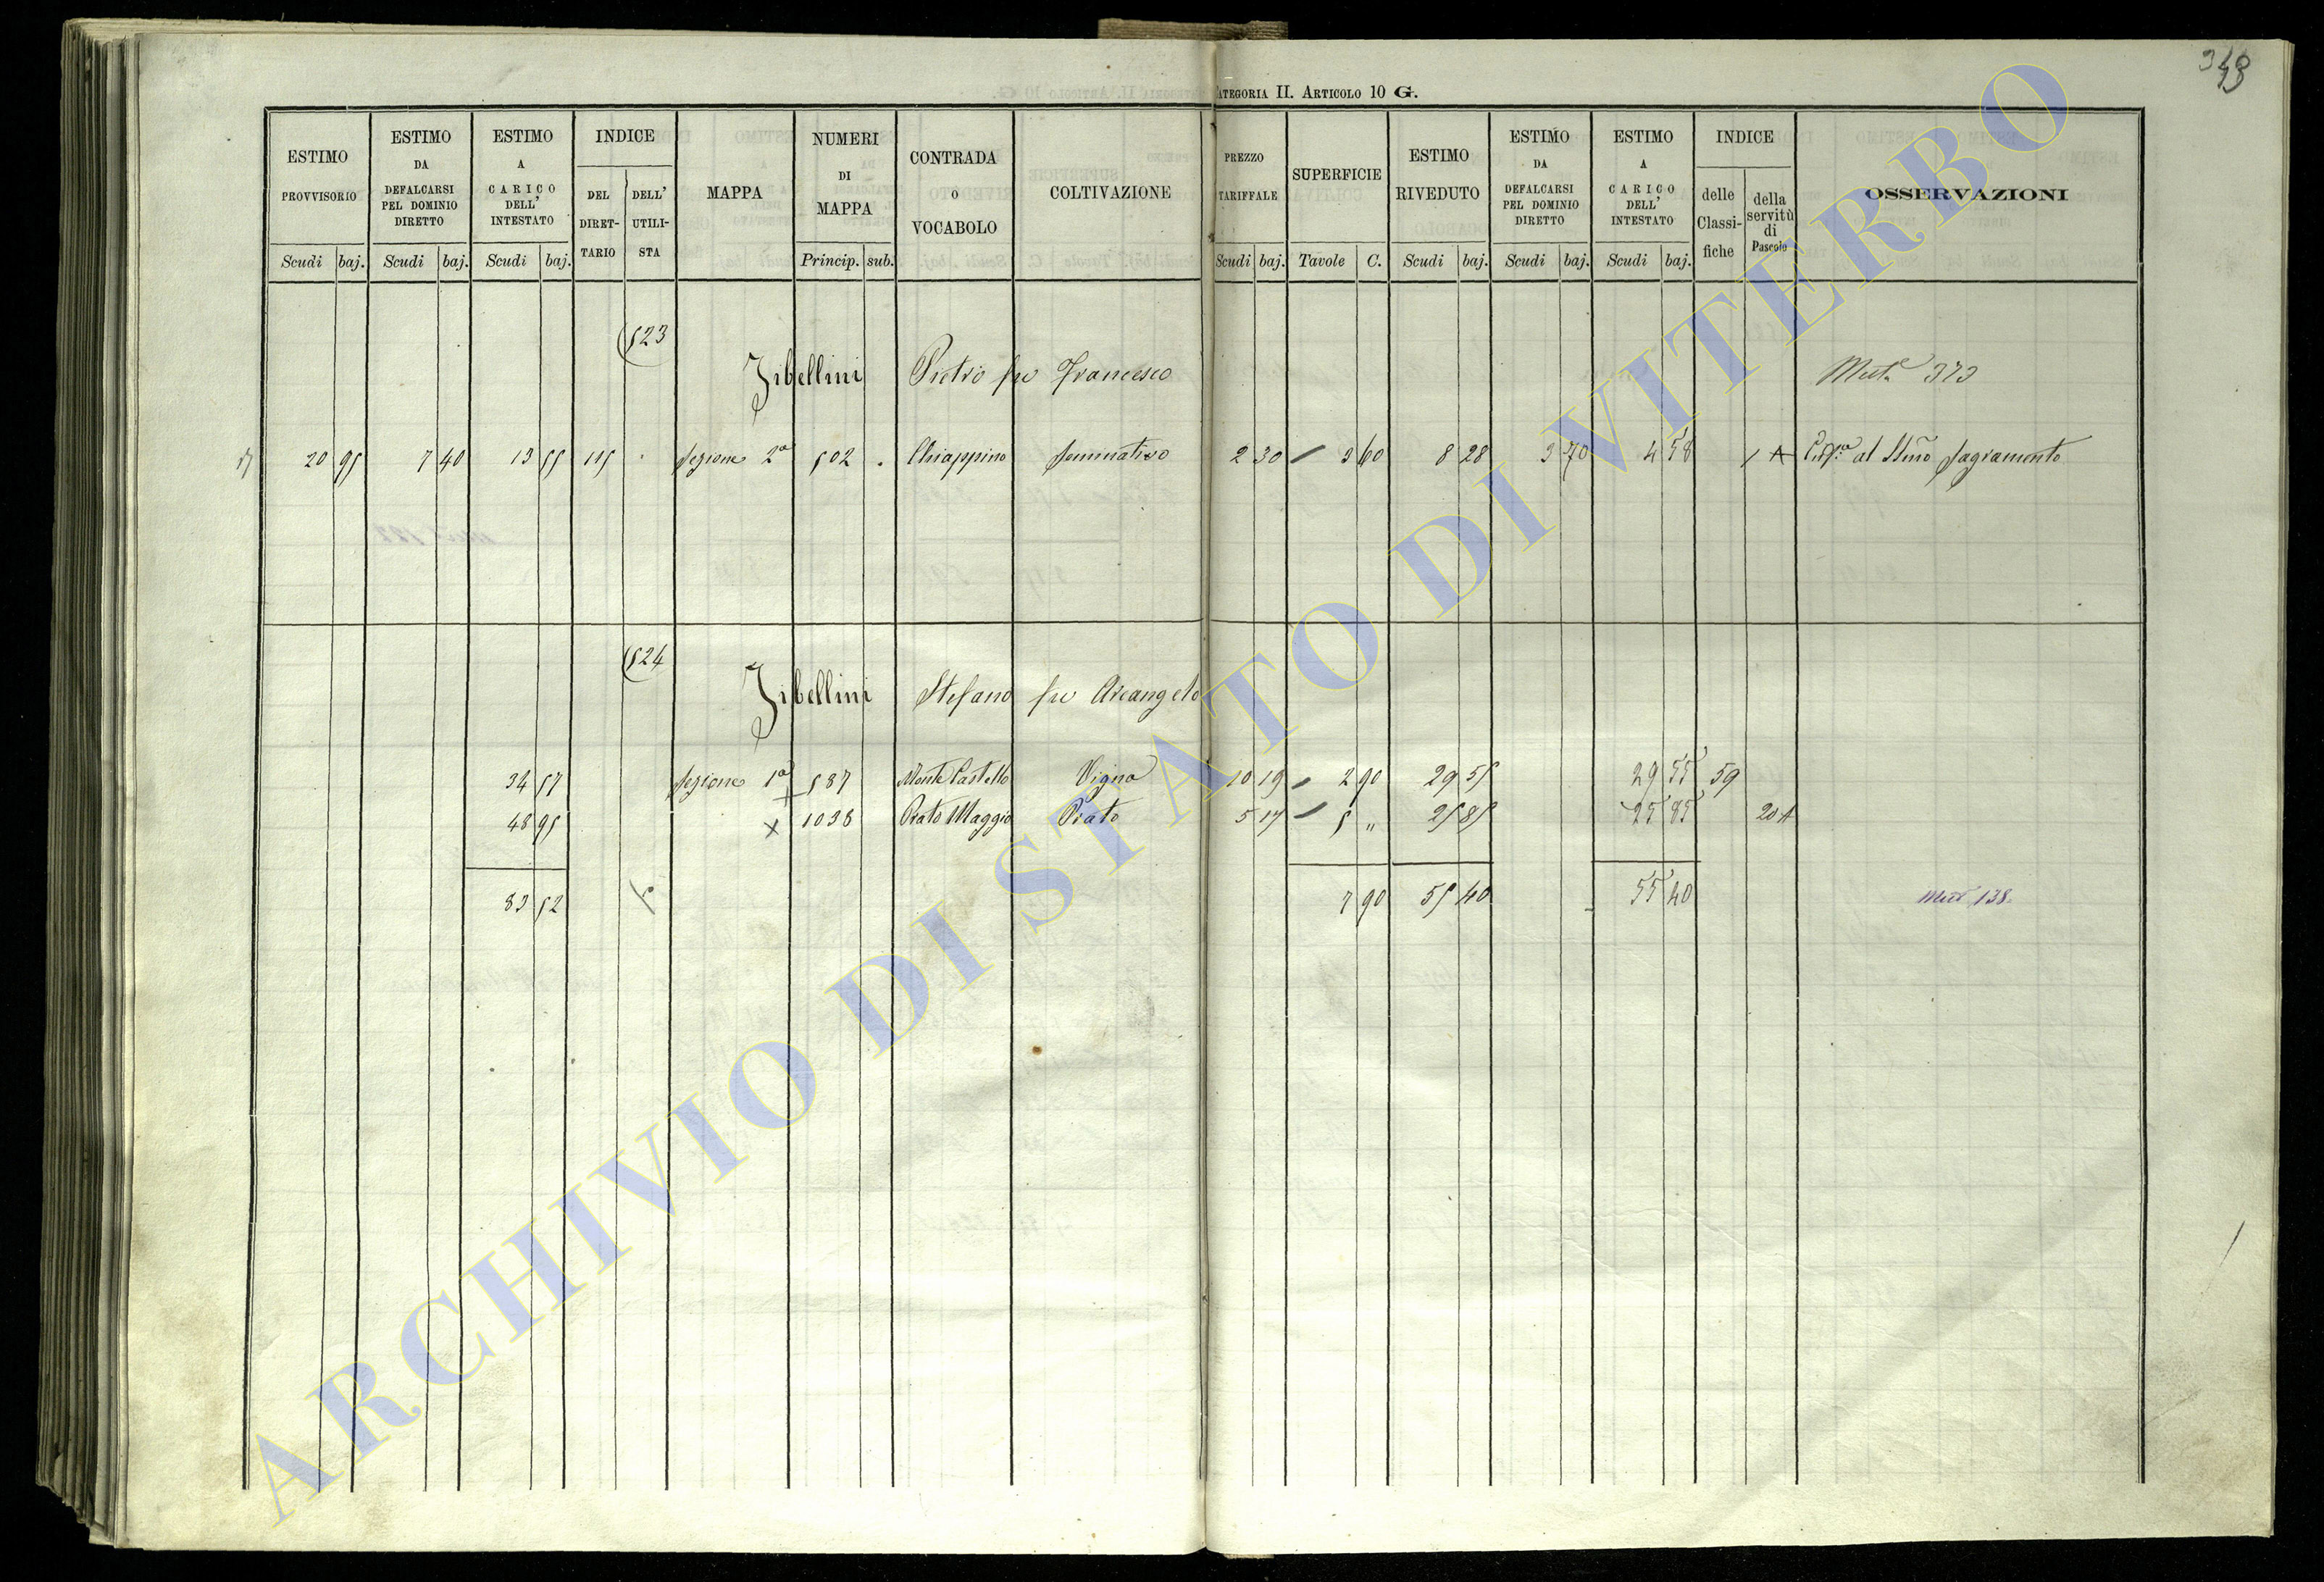 CATEGORIA II. ARTICOLO 10 G.
ESTIMO PROVVISORIO
Scudi baj.
ESTIMO DA DEFALCARSI PEL DOMINIO DIRETTO
Scudi baj.
ESTIMO A CARICO DELL' INTESTATO
Scudi baj.
INDICE
DEL DIRET-TARIO
DELL' UTILI-STA
MAPPA
NUMERI DI MAPPA
Princip. sub.
CONTRADA O VOCABOLO
COLTIVAZIONE
PREZZO TARIFFALE
Scudi baj.
SUPERFICIE
Tavole C.
ESTIMO RIVEDUTO
Scudi baj.
ESTIMO DA DEFALCARSI PEL DOMINIO DIRETTO
Scudi baj.
ESTIMO A CARICO DELL' INTESTATO
Scudi baj.
INDICE
delle Classi-fiche
della servitù di Pascolo
OSSERVAZIONI
523
Zibellini Pietro fu Francesco
20 95 7 40 13 55 115 Sezione 2a 502 Chiappino Seminativo 2 30 3 60 8 28 3 70 4 58 1 A al Ssmo Sagramento
524
Zibellini Stefano fu Arcangelo
34 57 Sezione 1a 587 Monte Castello Vigna 10 19 2 90 29 55 29 55 59
48 95 x 1038 Prato Maggio Prato 5 17 5 " 25 85 25 85 20 A
83 52 7 90 55 40 55 40 138
ARCHIVIO DI STATO DI VITERBO